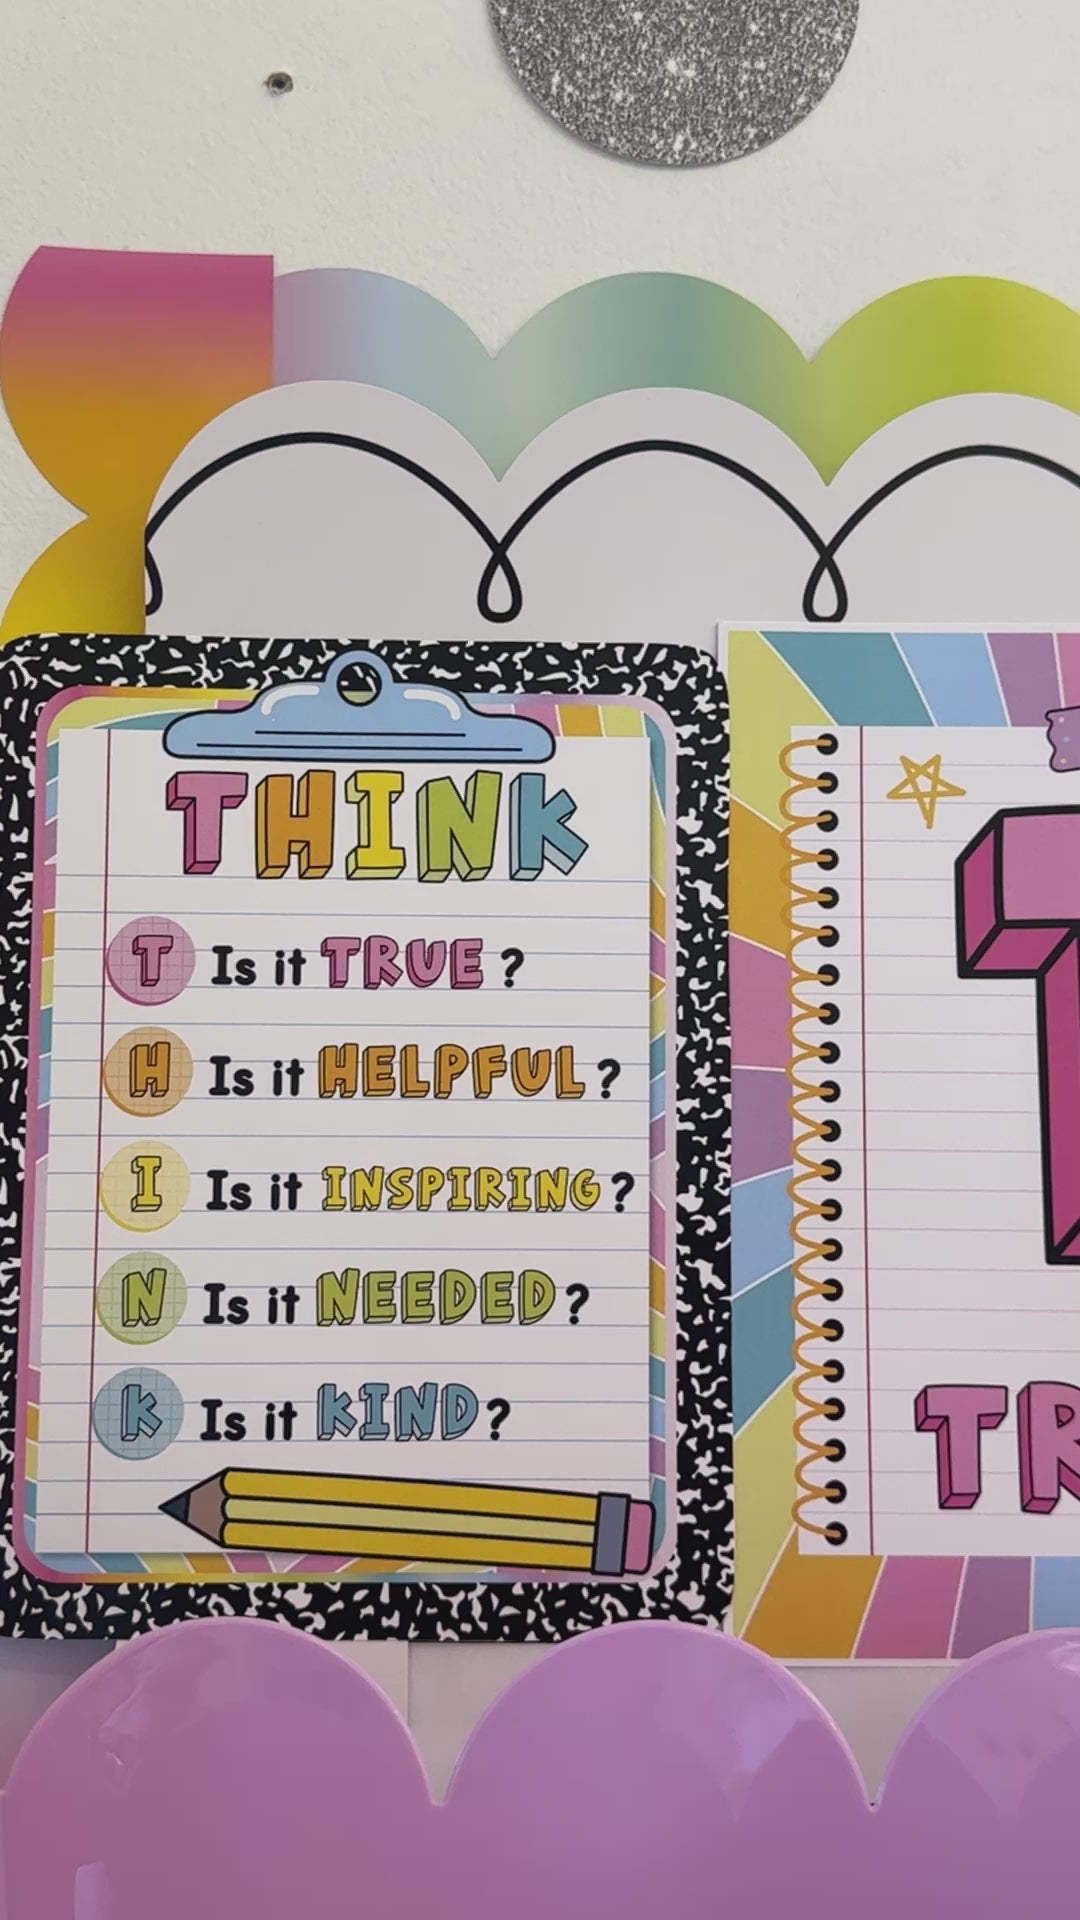 THINK
T Is it TRUE?
H Is it HELPFUL?
I Is it INSPIRING?
N Is it NEEDED?
K Is it KIND?
T
TR